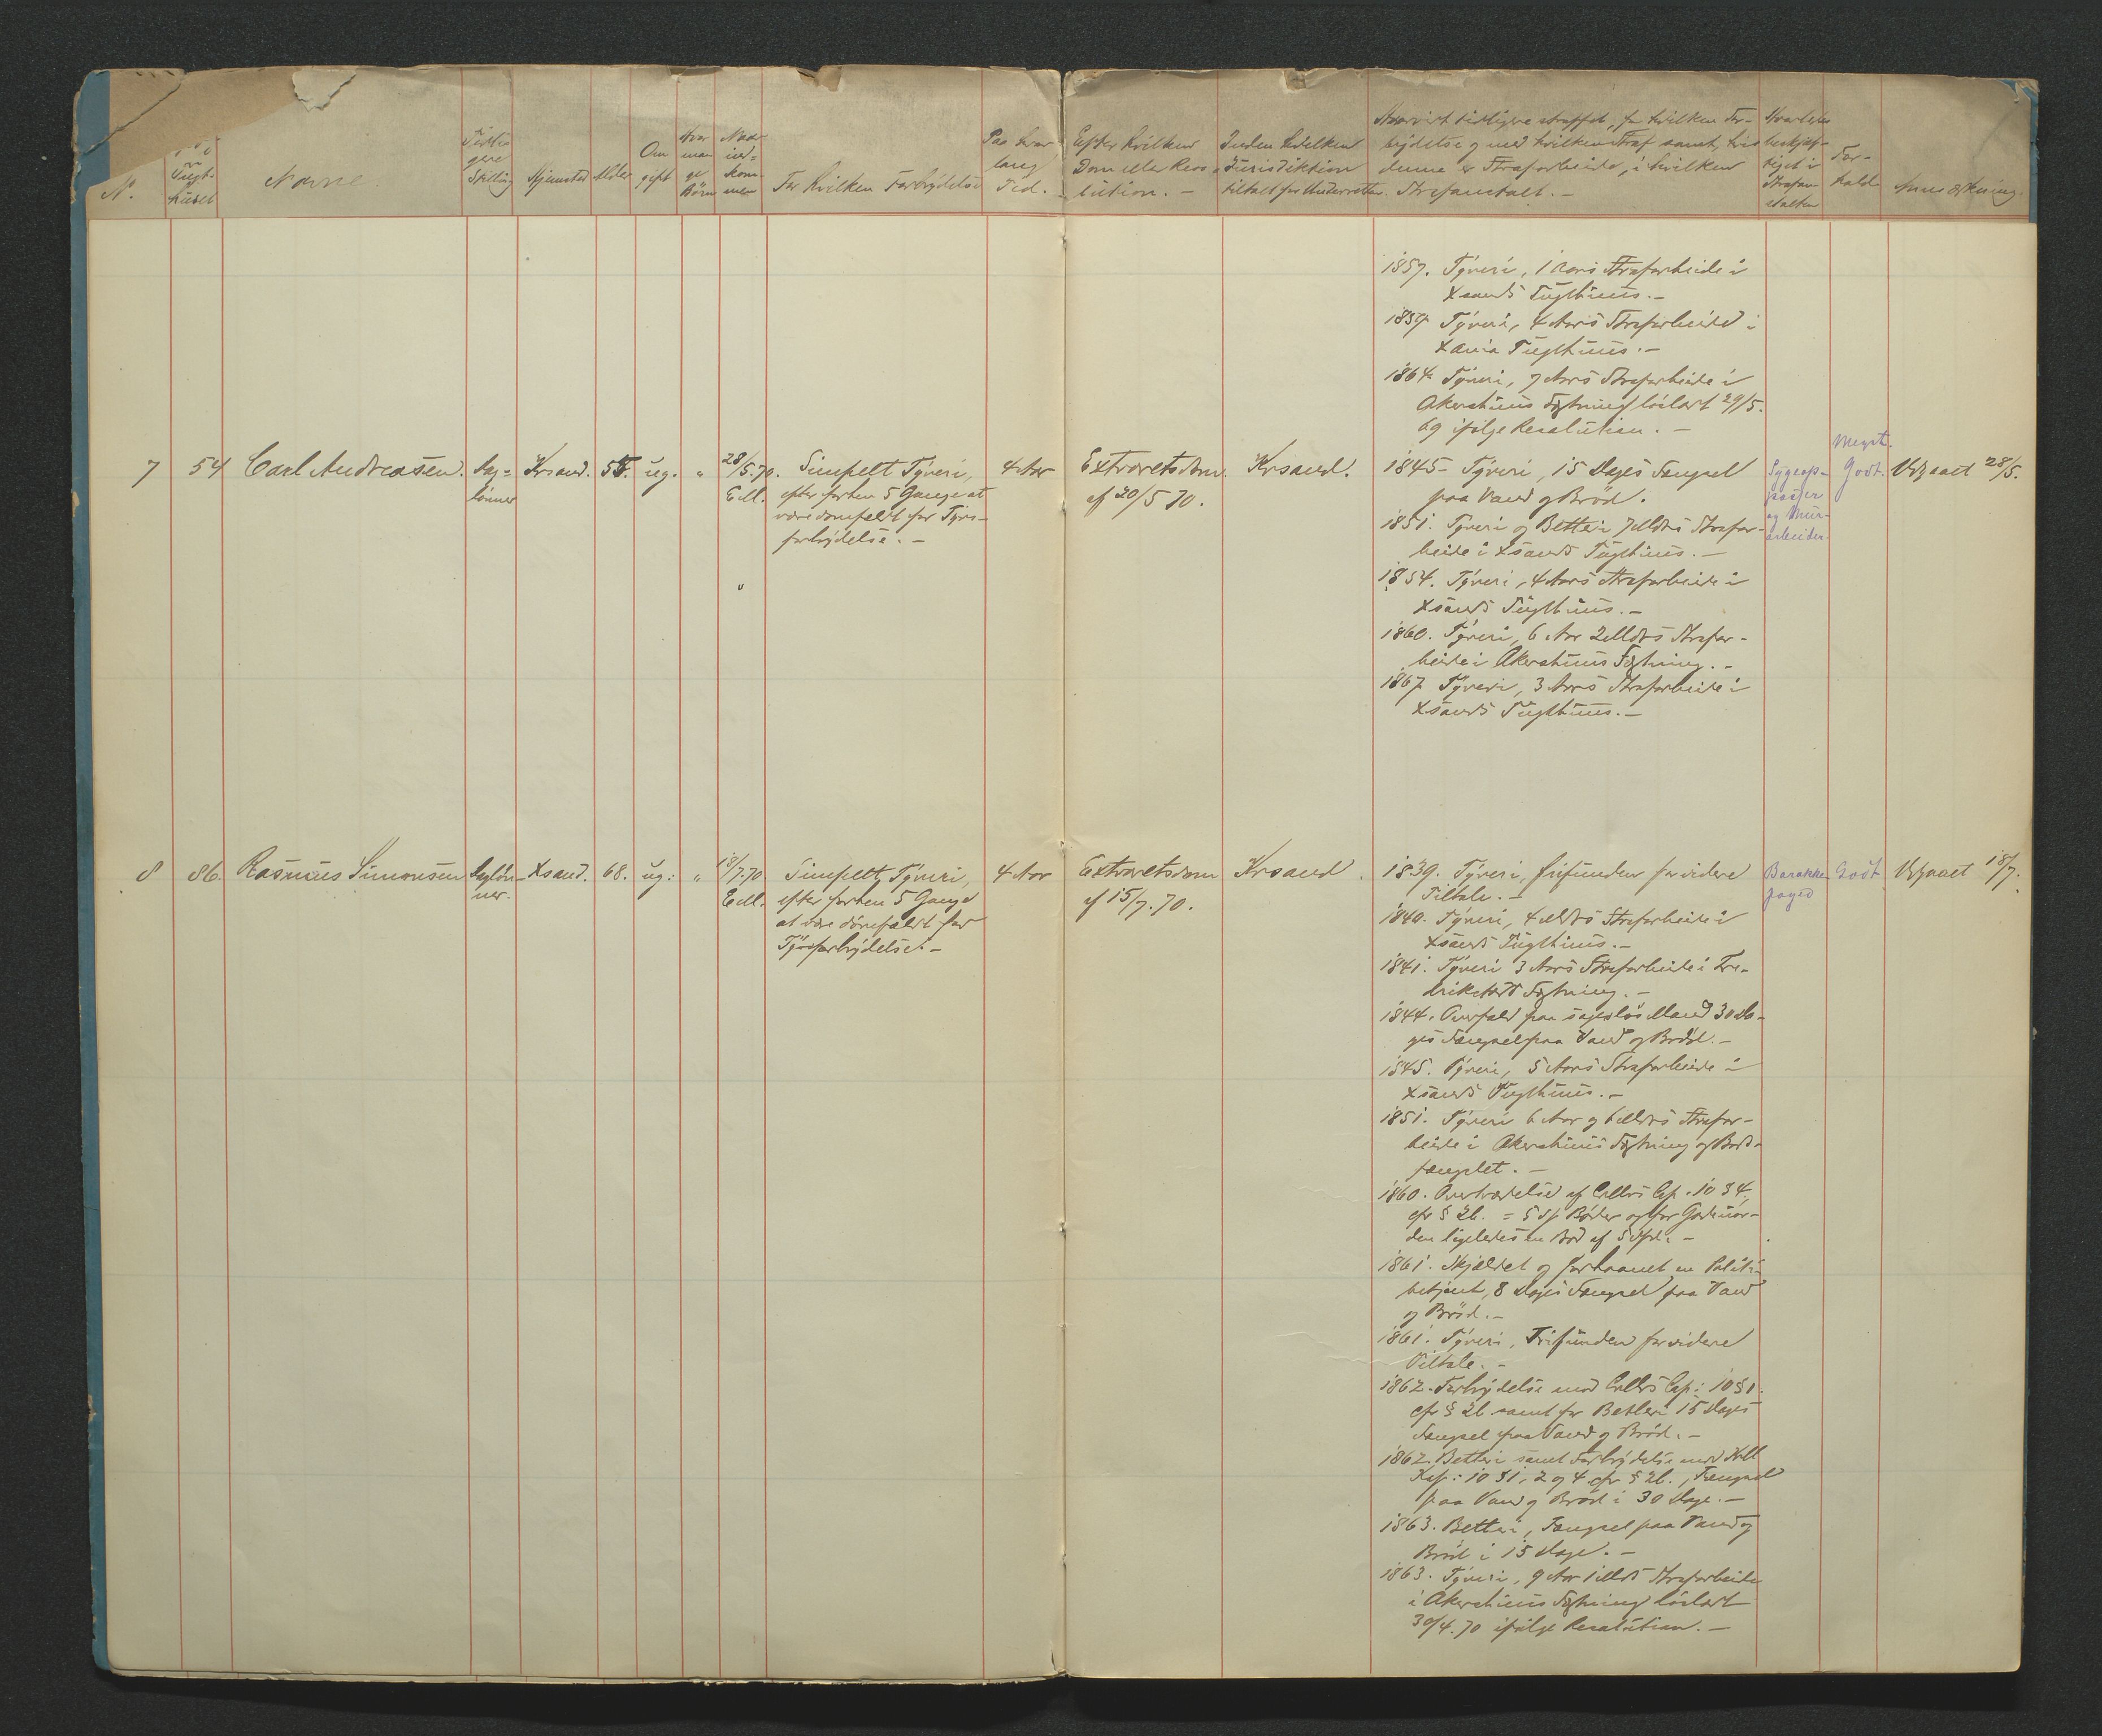 N.
Tugt-
huset
Navne
Tidli-
gere
Stilling
Hjemsted
Alder
Om
gift
Hvor
man
ge
Børn
Naar
ind=
kom-
men
For hvilken Forbrydelse
Paa hvor
lang
Tid. -
Efter hvilken
Dom eller Reso
lution. -
Inden hvilken
Jurisdiktion
tiltalt for Underretten
Hvorvidt tidligere straffet, for hvilken For-
brydelse og med hvilken Straf samt, hvis
denne er Strafarbeide, i hvilken
Strafanstalt. -
Hvorledes
beskjæf-
tiget i
Strafan-
stalten
For-
hold
Anmærkning.
1857. Tyveri, 1 Aars Strafarbeide i
Xsands Tugthuus. -
Tyveri, 4 Aars Strafarbeide i
Xania Tugthuus. -
1864 Tyveri, 7 Aars Strafarbeide i
Akershuus Fæstning løsladt 29/5.
69 ifølge Resolution. -
7 54 Carl Andreasen. Dag=
lønner
Krsand. ug. " 28/5.70.
Simpelt Tyveri,
efter forhen 5 Gange at
være domfeldt for Tyvs-
forbrydelse. -
4 Aar
Extraretsdom
af 20/5 70.
Krsand.
1845 - Tyveri, 15 Dages Fængsel
paa Vand og Brød.
1851. Tyveri og Betleri 7 Mdrs Strafar-
beide i Xsands Tugthuus. -
1854. Tyveri, 4 Aars Strafarbeide i
Xsands Tugthuus. -
1860. Tyveri, 6 Aar 2 Mdrs Strafar-
beide i Akershuus Fæstning. -
1867 Tyveri, 3 Aars Strafarbeide i
Xsands Tugthuus. -
Sygeop-
passer
og Mur-
arbeider
Meget
Godt.
Udgaaet 28/5.
8 86. Rasmus Simonsen Dagløn-
ner.
Xsand. 68. ug: " 18/7.70
Simpelt Tyveri,
efter forhen 5 Gange
at være domfældt for
Tyvsforbrydelse. -
4 Aar
Extraretsdom
af 15/7. 70.
Krsand.
1839. Tyveri, frifunden for videre
Tiltale. -
1840. Tyveri, 4 Mdrs Strafarbeide i
Xsands Tugthuus. -
1841. Tyveri 3 Aars Strafarbeide i Fre-
drikstad Fæstning. -
1844. Overfald paa sagesløs Mand 30 Da-
ges Fængsel paa Vand og Brød. -
1845. Tyveri, 5 Aars Strafarbeide i
Xsands Tugthuus. -
1851. Tyveri 6 Aar og 6 Mdrs Strafar-
beide i Akershuus Fæstning og Bods-
fængslet. -
1860. Overtrædelse af Crllvs Cap. 10 § 4.
cfr § 26. = 5 Bøder og for Gadeuor-
den ligeledes en Bod af -
1861. Skjældet og forhaanet en Politi-
betjent, 8 Dages Fængsel paa Vand
og Brød. -
1861. Tyveri, Frifunden for videre
Tiltale. -
1862. Forbrydelse mod Crllvs Cap: 10 § 1.
cfr § 26 samt for Betleri 15 Dages
Fængsel paa Vand og Brød. -
1862. Betleri samt Forbrydelse mod
Kap: 10 § 1, 2 og 4 cfr § 26., Fængsel
paa Vand og Brød i 30 Dage. -
1863. Betleri, Fængsel paa Vand og
Brød i 15 Dage. -
1863. Tyveri, 9 Aar 1 Mdrs Strafarbeide
i Akershuus Fæstning løsladt
30/4.70 ifølge Resolution. -
Barakke
Godt
Udgaaet 18/7.